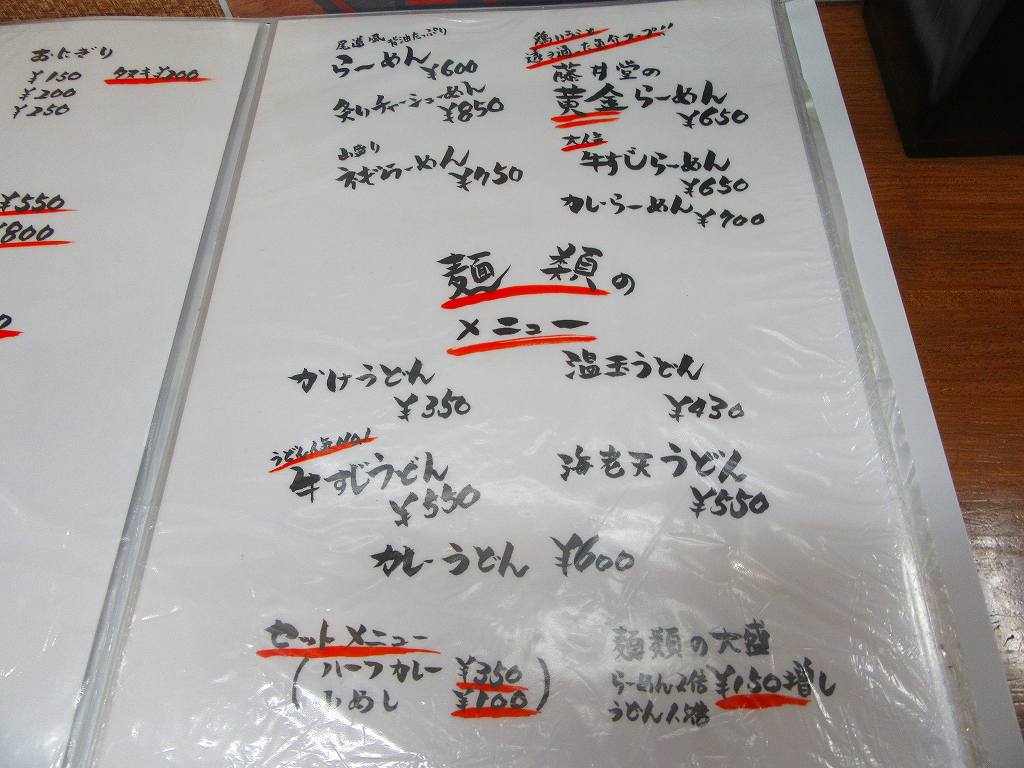 おにぎり
¥150 タマキ¥200
¥200
¥250
¥550
¥800
尾道風 背油たっぷり
らーめん ¥600
炙りチャーシューめん ¥850
山盛り
ネギらーめん ¥750
透き通った魚介スープ!!
藤井堂の
黄金らーめん ¥650
大人気
牛すじらーめん ¥650
カレーらーめん ¥700
麺類の
メニュー
かけうどん ¥350
温玉うどん ¥430
うどん人気NO1
牛すじうどん ¥550
海老天うどん ¥550
カレーうどん ¥600
セットメニュー
(ハーフカレー ¥350
めし ¥100)
麺類の大盛
らーめん2倍 ¥150増し
うどん